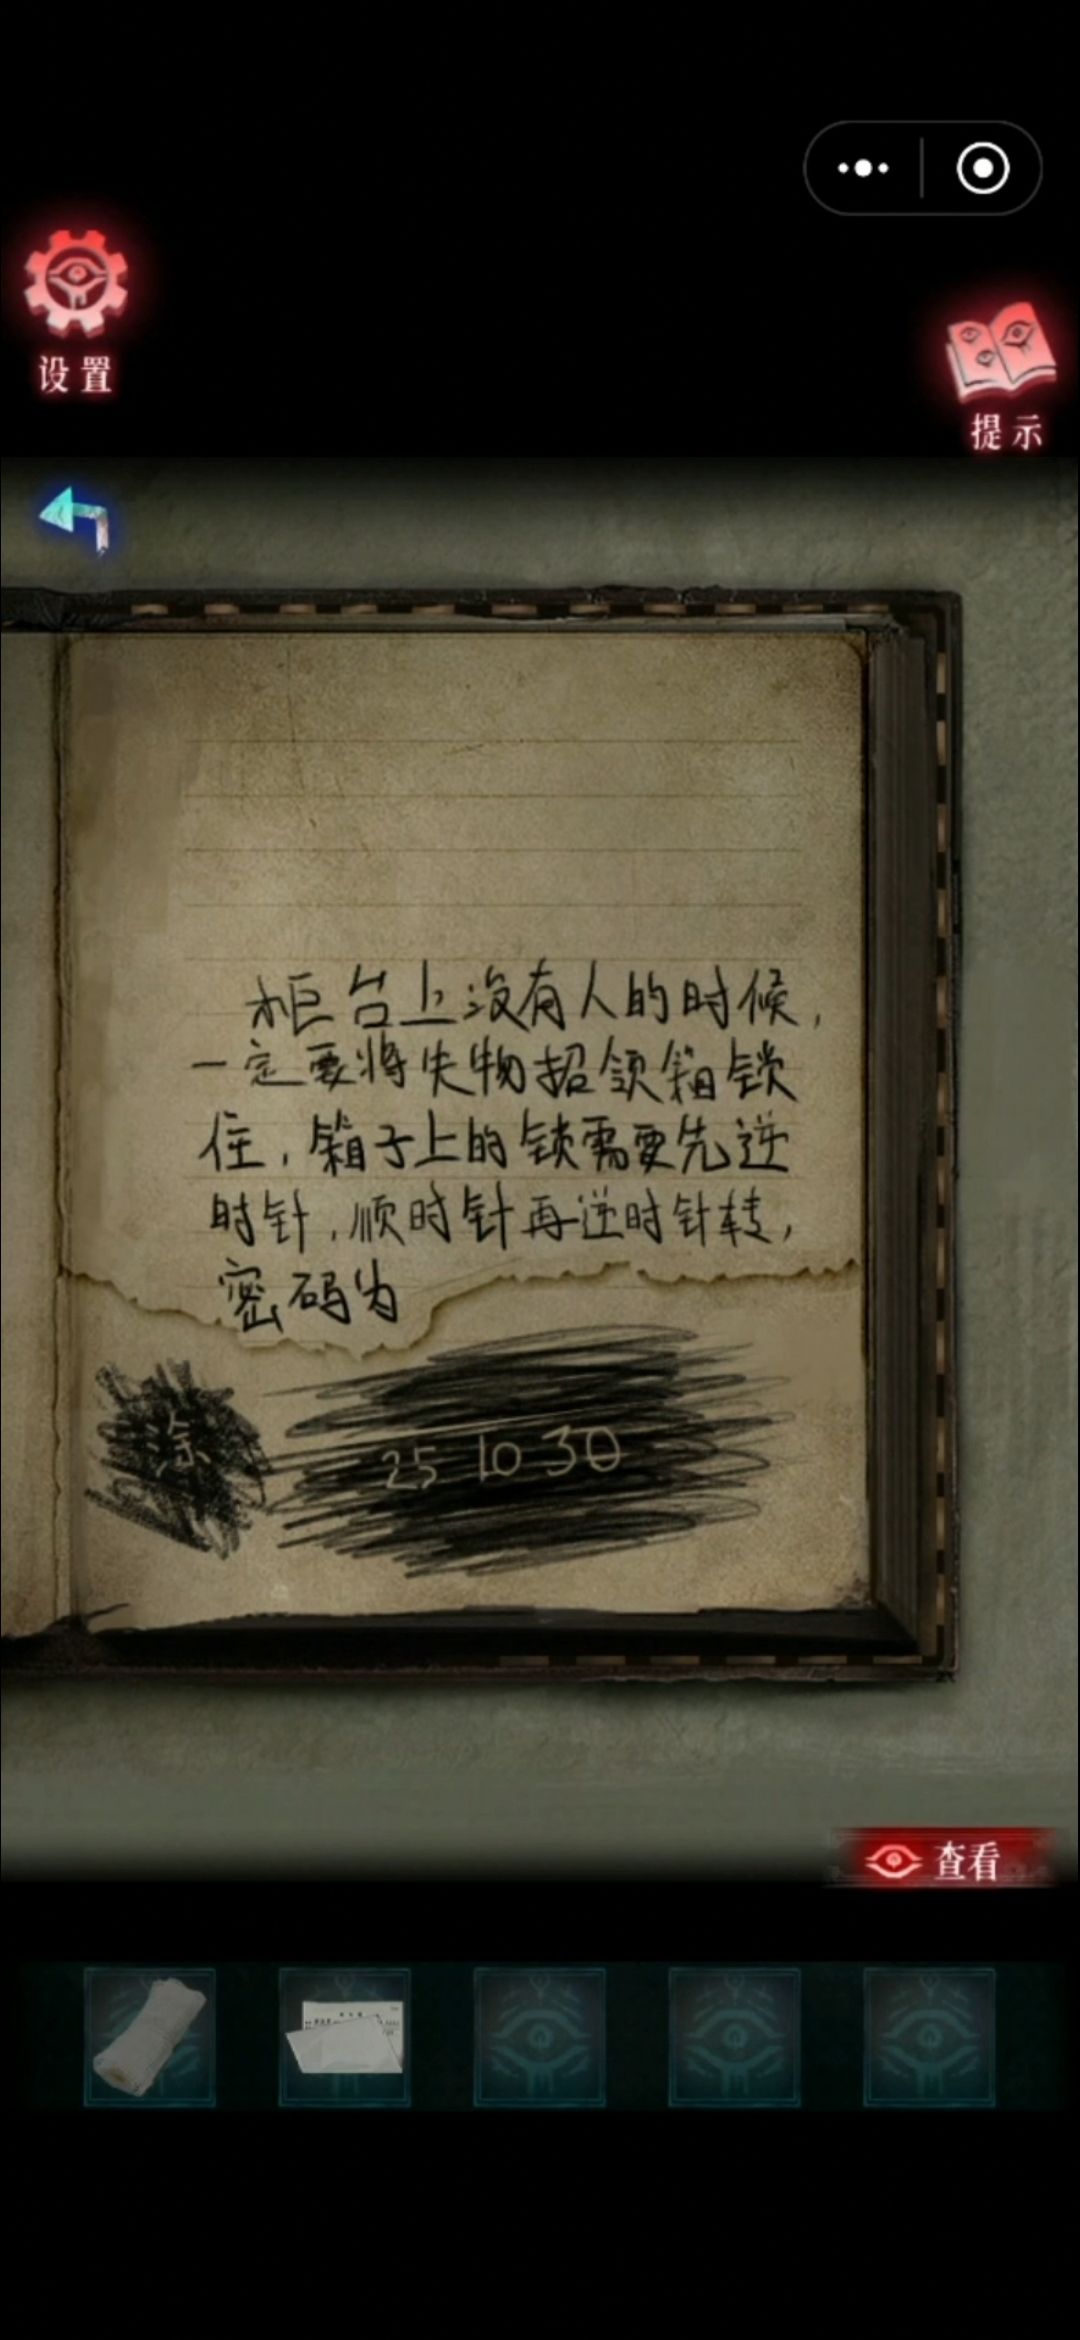 设置
提示
柜台上没有人的时候,
一定要将失物招领箱锁
住,箱子上的锁需要先逆
时针,顺时针再逆时针转,
密码为
涂
25 10 30
查看